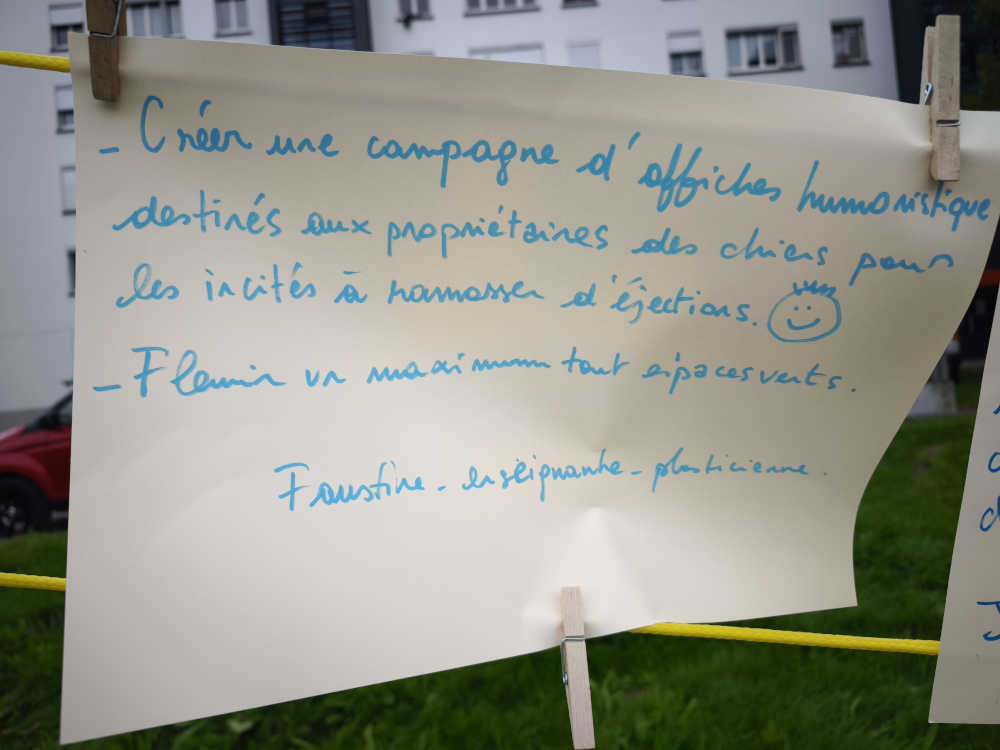 - Créer une campagne d'affiches humoristique
destinés aux propriétaires des chiens pour
les incités à ramasser d'éjections.
- Fleurir un maximum tout espaces verts.
Faustine - enseignante - plasticienne.